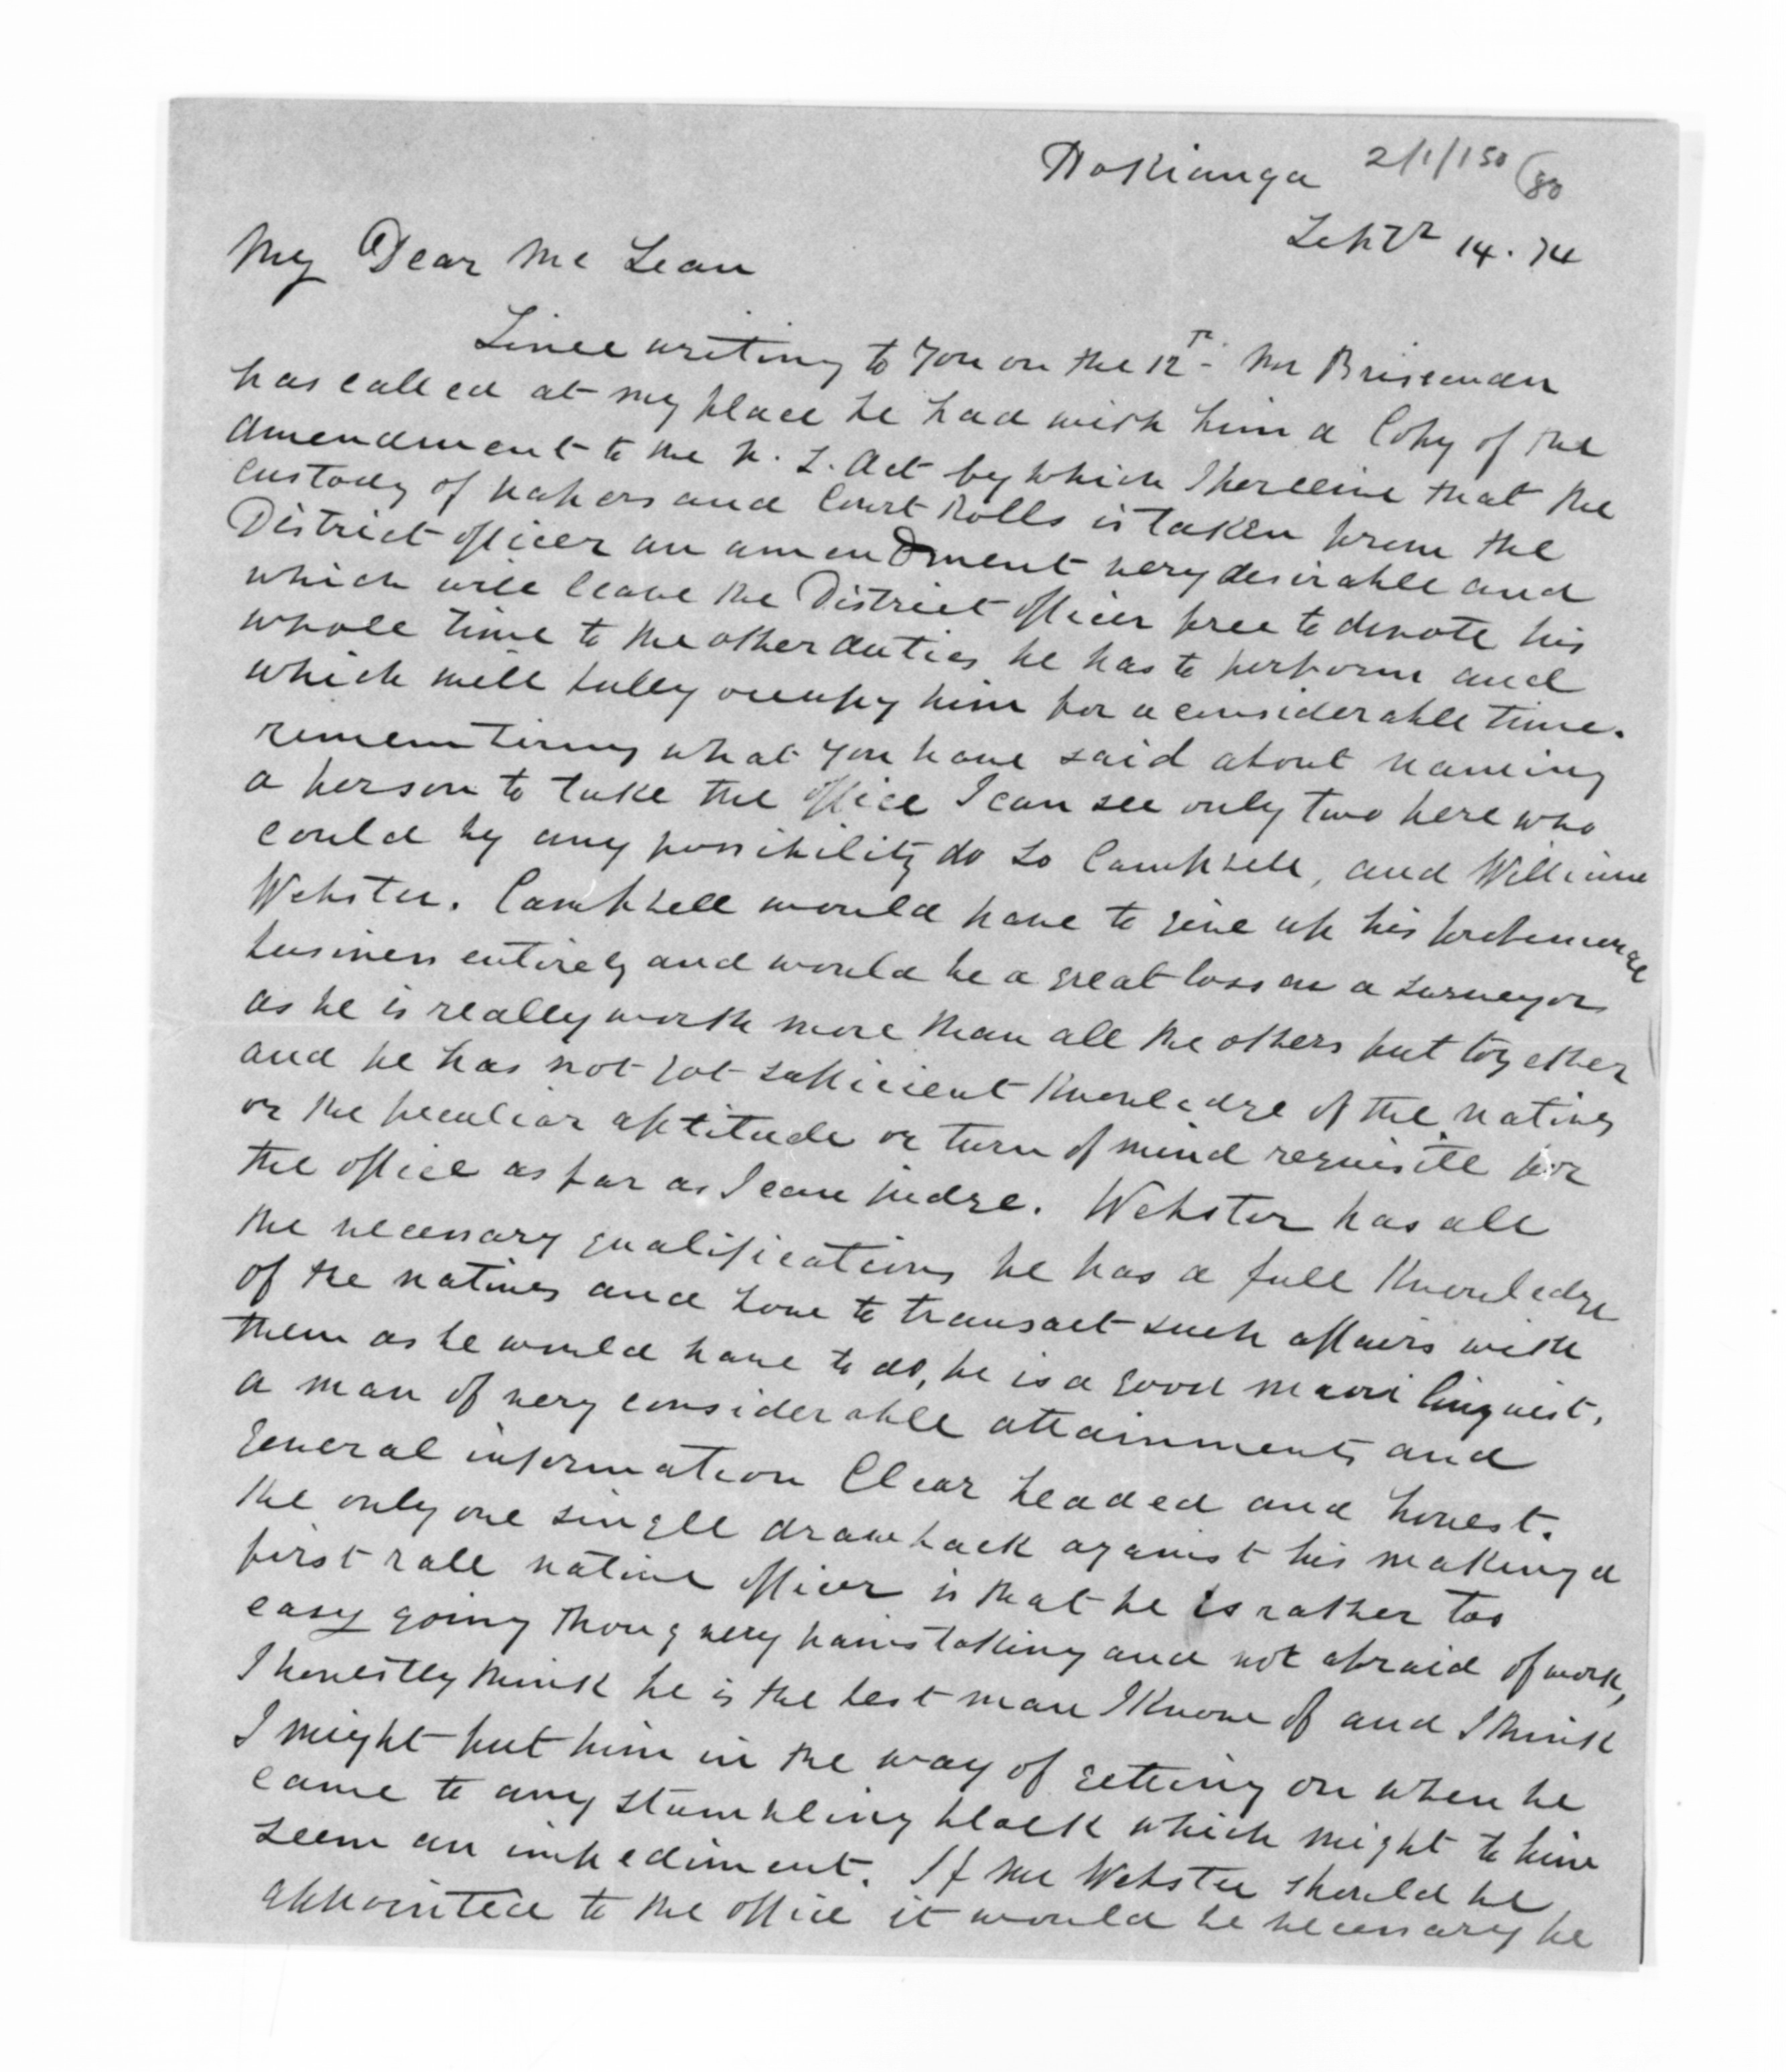 Hokianga 2/1/150 (80
Sept 14. 74
My Dear Mc Lean
Since writing to you on the 12th Mr Brissenden
has called at my place he had with him a Copy of the
amendment to the N. L. Act by which I perceive that the
custody of papers and Court Rolls is taken from the
District officer an amendment very desirable and
which will leave the District officer free to devote his
whole time to the other duties he has to perform and
which will fully occupy him for a considerable time.
remembering what you have said about naming
a person to take the office I can see only two here who
could by any possibility do so Campbell, and William
Webster. Campbell would have to give up his professional
business entirely and would be a great loss as a surveyor
as he is really worth more than all the others put together
and he has not got sufficient Knowledge of the natives
or the peculiar aptitude or turn of mind requisite for
the office as far as I can judge. Webster has all
the necessary qualifications he has a full Knowledge
of the natives and how to transact such affairs with
them as he would have to do, he is a good maori linguist,
a man of very considerable attainments and
general information Clear headed and honest.
the only one single drawback against his making a
first rate native officer is that he is rather too
easy going thoug very painstaking and not afraid of work,
I honestly think he is the best man I Know of and I think
I might put him in the way of getting on when he
came to any stumbling block which might to him
seem an impediment. If Mr Webster should be
appointed to the office it would be necessary he